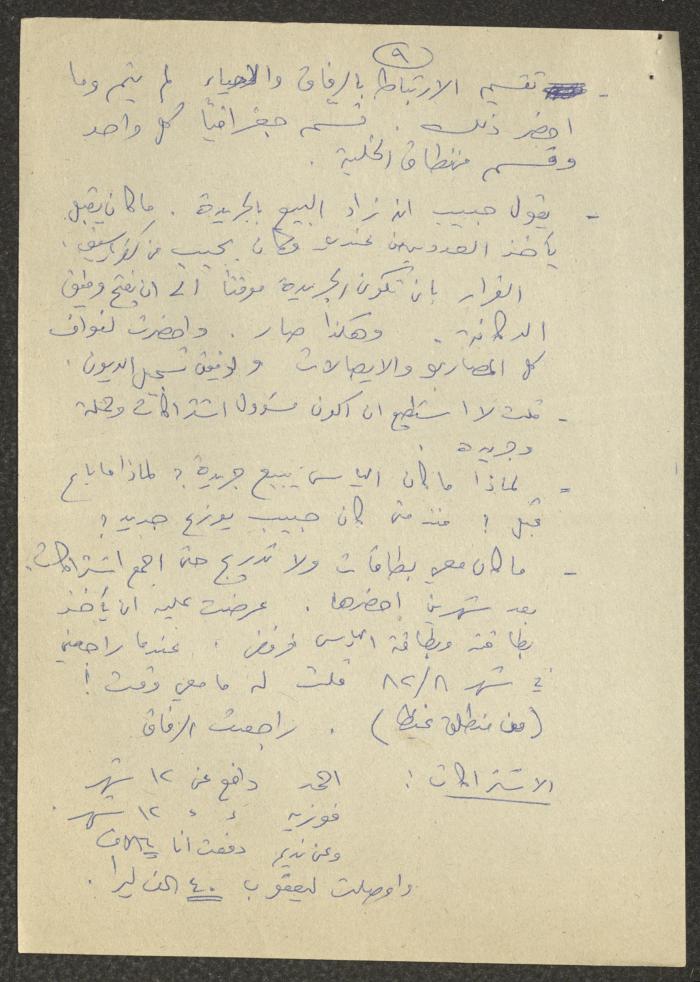 ٩
- تقسيم الارتباط بالرفاق والاحياء لم يتم وما
احضر ذلك . قسم جغرافياً كل واحد
وقسم منطاق الخلية .
- يقول حبيب انه زاد البيع بالجريدة . ما كان يقبل
يأخذ العدد من عندي وكان يجيب من
القرار بان تكون الجريدة موقتاً الى ان يفتح رفيق
الدكانة . وهكذا صار . واحضرت لنواف
كل المصاري والايصالات و لرفيق تسجيل الديون .
- قلت لا استطيع ان اكون مسؤول اشتراكات وحملة
وجريدة .
- لماذا ما كان الياس يبيع جريدة ؟ لماذا ما باع
قبل ؟ منذ متى كان حبيب يوزع جديد ؟
- ما كان معي بطاقات ولا تدريج حتى اجمع اشتراكات .
بعد شهرين احضرها . عرضت عليه ان يأخذ
بطاقته وبطاقة الياس فرفض . عندما راجعني
في شهر ٨٢/٨ قلت له ما معي وقت !
(من منطلق غلط) . راجعت الرفاق
الاشتراكات : احمد دافع عن ١٢ شهر
فوزيه " " ١٢ شهر .
وعن نديم دفعت انا
واوصلت ليعقوب ٤٠ الف ليرا .